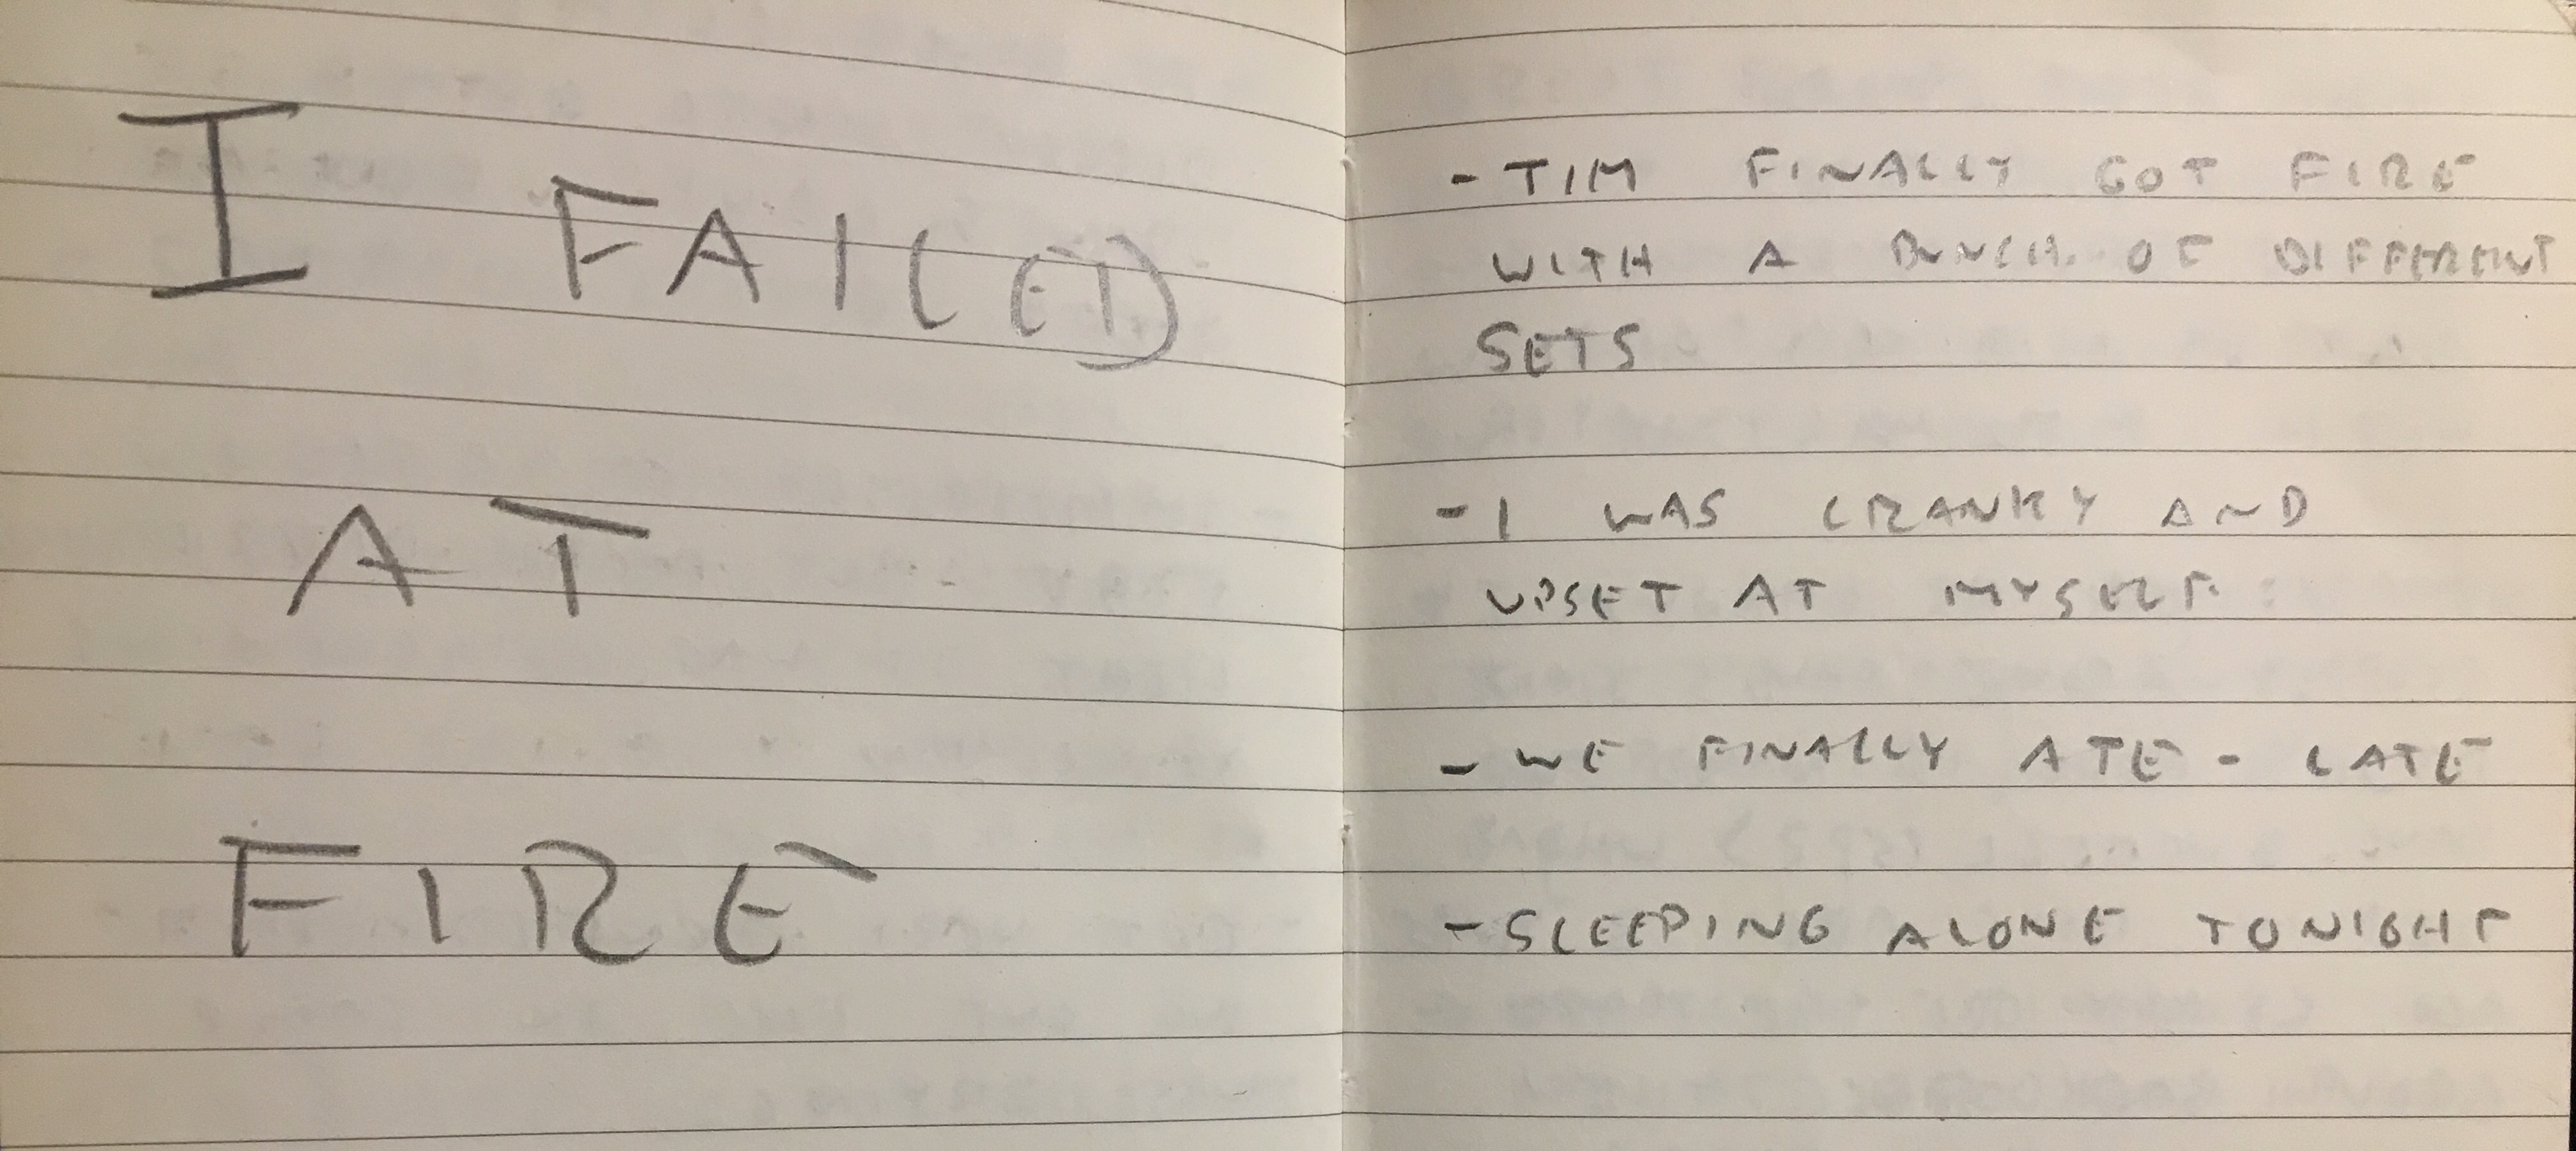 I FAILED
AT
FIRE
- TIM FINALLY GOT FIRE
WITH A BUNCH OF DIFFERENT
SETS
- I WAS CRANKY AND
UPSET AT MYSELF.
- WE FINALLY ATE - LATE
- SLEEPING ALONE TONIGHT